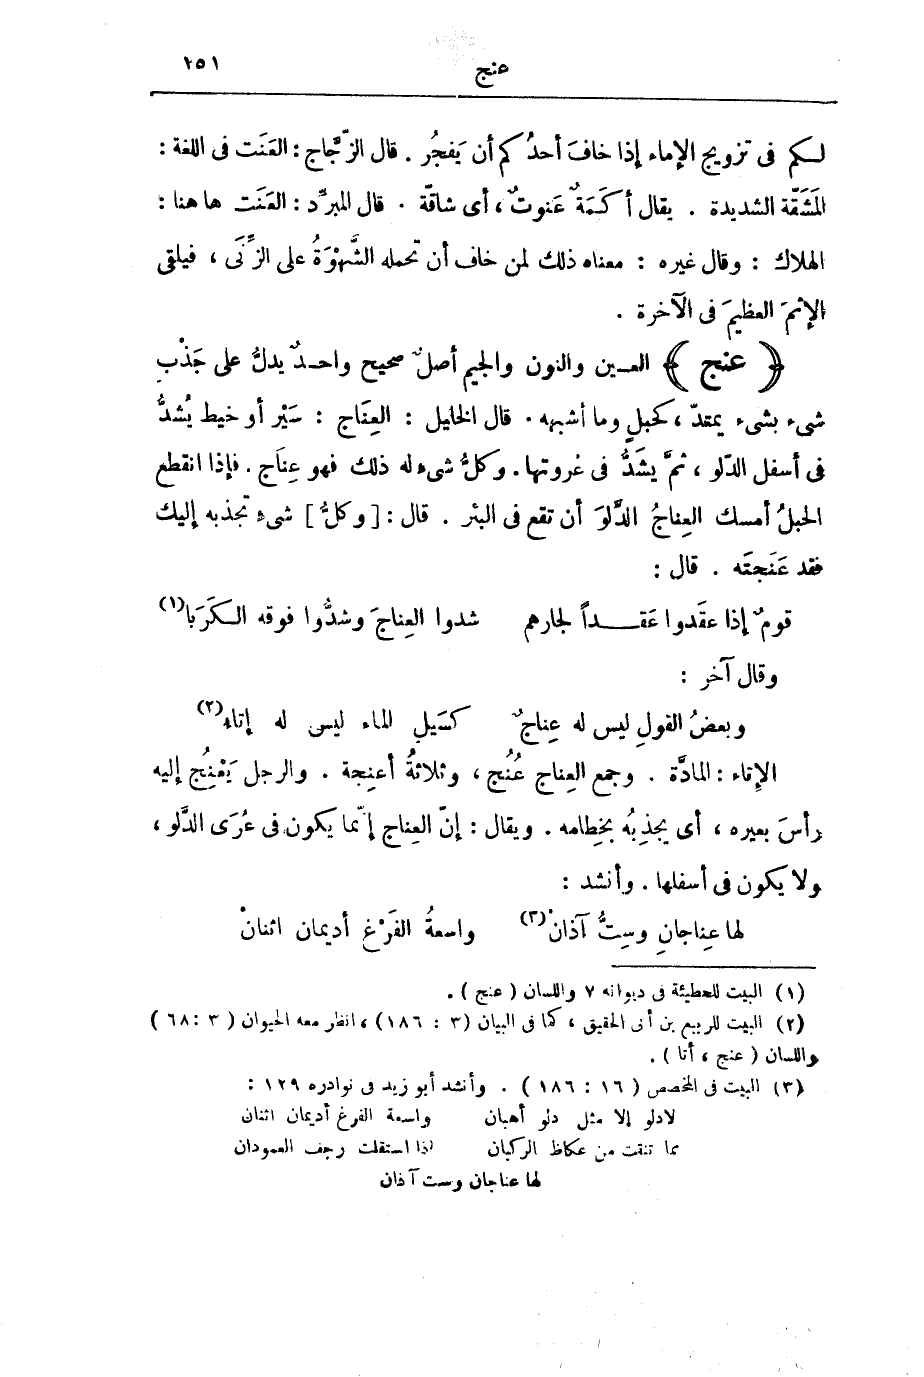 عنج ١٥١
لكم فى تزويج الإماء إذا خافَ أحدُكم أن يَفجُر . قال الزّجّاج : العَنَت فى اللغة :
المَشَقّة الشديدة . يقال أكَمَةٌ عَنوتٌ ، أى شاقّة . قال المبرِّد : العَنَت ها هنا :
الهلاك : وقال غيره : معناه ذلك لمن خاف أن تحمله الشَّهْوَةُ على الزِّنَى ، فيلقى
الإثمَ العظيمَ فى الآخرة .
﴿ عنج ﴾ العـين والنون والجيم أصلٌ صحيح واحـدٌ يدلُّ على جَذْبِ
شىء بشىء يمتدّ ، كحبلٍ وما أشبهه . قال الخليل : العِنَاج : سَيْر أو خيط يُشدُّ
فى أسفل الدّلو ، ثمَّ يشَدُّ فى عُروتها . وكلُّ شىء له ذلك فهو عِناَج . فإذا انقطع
الحبلُ أمسك العِناجُ الدَّلوَ أن تقع فى البئر . قال : [ وكلُّ ] شىءٍ تجذبه إليك
فقد عَنَجتَه . قال :
قومٌ إذا عقَدوا عَقـــداً لجارهم شدوا العِناجَ وشدُّوا فوقه الـكَرَبا(١)
وقال آخر :
وبعضُ القولِ ليس له عِناجٌ كسَيلِ الماء ليس له إتاء(٢)
الإتاء : المادَّة . وجمع العِناج عُنُج ، وثلاثةُ أعنِجة . والرجل يَعْنِج إليه
رأسَ بعيره ، أى يجذِبُه بخِطامه . ويقال : إنّ العِناج إنّما يكون فى عُرَى الدَّلو ،
ولا يكون فى أسفلها . وأنشد :
لها عِناجانِ وسِتُّ آذانْ(٣) واسعةُ الفَرْغ أديمان اثنانْ
(١) البيت للحطيئة فى ديوانه ٧ واللسان ( عنج ) .
(٢) البيت للربيع بن أبى الحقيق ، كما فى البيان (٣ : ١٨٦) ، انظر معه الحيوان ( ٣ : ٦٨ )
واللسان ( عنج ، أتا ) .
(٣) البيت فى المخصص ( ١٦ : ١٨٦ ) . وأنشد أبو زيد فى نوادره ١٢٩ :
لادلو إلا مثل دلو أهبان واسعة الفرغ أديمان اثنان
مما تنقت من عكاظ الركبان إذا استقلت رجف العمودان
لها عناجان وست آذان